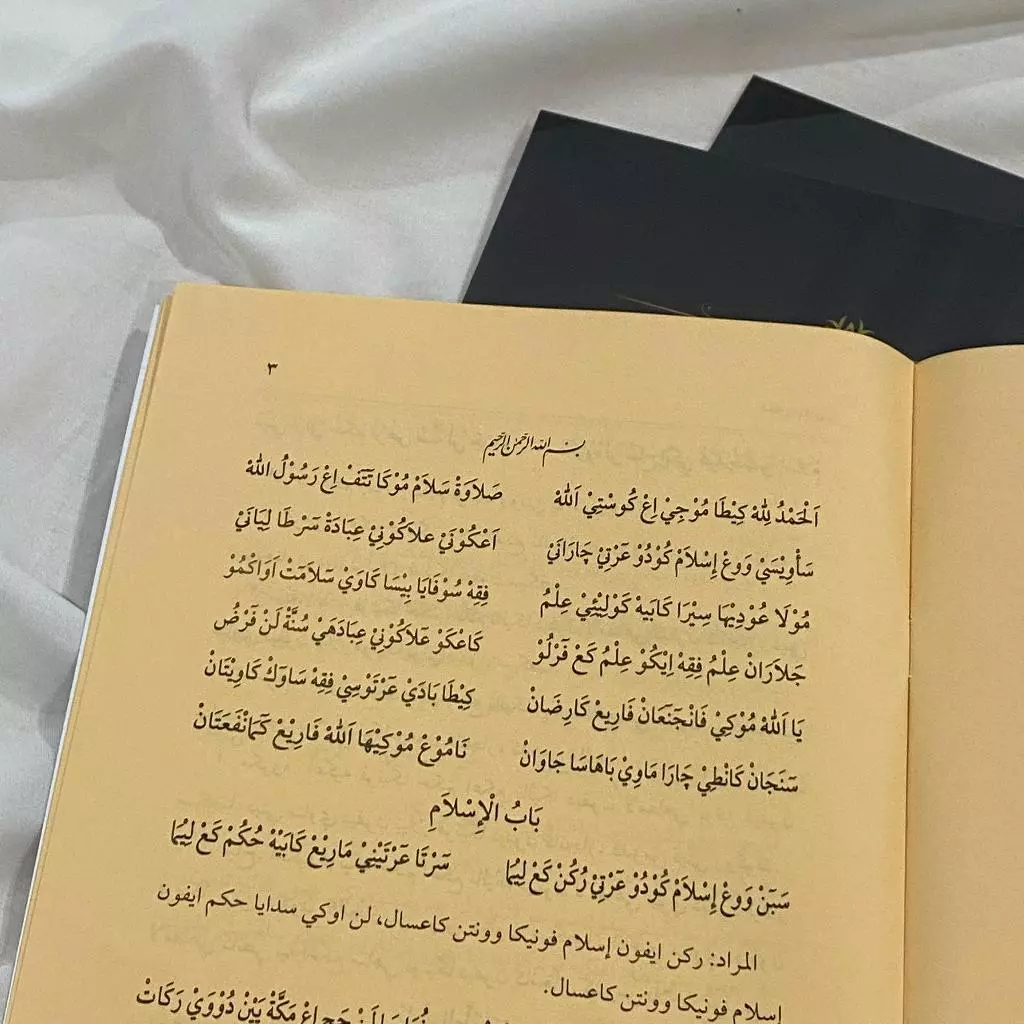 ٣
بسم الله الرحمن الرحيم
اَلْحَمْدُ لِلّٰهْ كِيْطَا مُوْجِيْ اِڠْ ڮُوْسْتِيْ اَللّٰهْ صَلَاوَةْ سَلَامْ مُوْڮَا تَتَفْ اِڠْ رَسُوْلُ اللّٰهْ
سَأْوِيْسَيْ وَوڠْ إِسْلَامْ كُوْدُوْ عَرْتِيْ چَارَانَيْ اَعْڮُوْنَيْ علَاكُوْنِيْ عِبَادَةْ سَرْطَا لِيَانَيْ
مُوْلَا عُوْدِيْهَا سِيْرَا كَابَيْهْ كَوْلَيْتِيْ عِلْمُ فِقِهْ سُوْفَايَا بِيْسَا ڮَاوَيْ سَلَامَتْ اَوَاكْمُوْ
جَلَارَانْ عِلْمُ فِقِهْ اِيْكُوْ عِلْمُ كَڠْ فَرْلُوْ كَاعْڮَوْ علَاكُوْنِيْ عِبَادَهَيْ سُنَّةْ لَنْ فَرْضُ
يَا اَللّٰهْ مُوْڮِيْ فَانْجَنَعَانْ فَارِيْڠْ ڮَارِضَانْ كِيْطَا بَادَيْ عَرْتَوْسِيْ فِقِهْ سَاوَكْ ڮَاوِيْتَانْ
سَنَجَانْ كَانْطِيْ چَارَا مَاوِيْ بَاهَاسَا جَاوَانْ نَامُوْڠْ مُوْڮِيْهَا اَللّٰهْ فَارِيْڠْ كَمَانْفَعَتَانْ
بَابُ الْإِسْلَامِ
سَبَنْ وَوڠْ إِسْلَامْ كُوْدُوْ عَرْتِيْ رُكُنْ كَڠْ لِيْمَا سَرْتَا عَرْتَيْنِيْ مَارِيْڠْ كَابَيْهْ حُكُمْ كَڠْ لِيْمَا
المراد: ركن ايفون إسلام فونيكا وونتن ڮاعسال، لن اوڮي سدايا حكم ايفون
إسلام فونيكا وونتن ڮاعسال.
لَنْ حَجِ اِڠْ مَكَّةْ بَيْنْ دُوْوَيْ رَكَاتْ